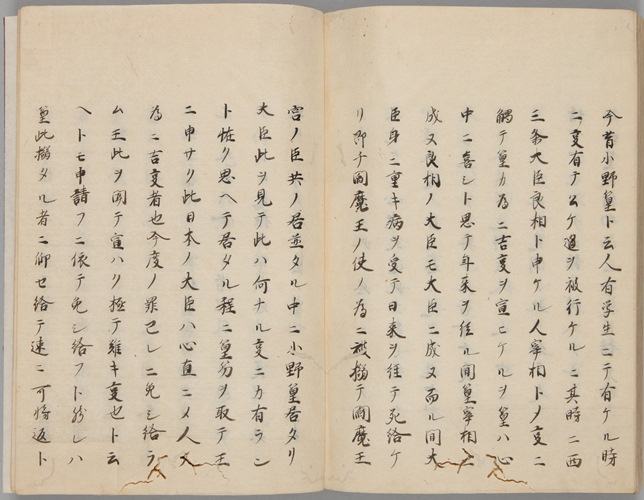 今昔小野篁ト云人有学生ニテ有ケル時
ニ事有テ公ケ過ヲ被行ケルニ其時ニ西
三条大臣良相ト申ケル人宰相トメ事ニ
觸テ篁カ為ニ吉事ヲ宣ヒケルヲ篁ハ心
中ニ喜シト思テ年来ヲ経ル間篁宰相ニ
成又良相ノ大臣モ大臣ニ成又而ル間大
臣身ニ重キ病ヲ受テ日来ヲ経テ死給ケ
リ即チ閻魔王ノ使ノ為ニ被搦テ閻魔王
宮ノ臣共ノ居並タル中ニ小野篁居タリ
大臣此ヲ見テ此ハ何ナル事ニカ有ラン
ト恠ク思ヘテ居タル程ニ篁笏ヲ取テ王
ニ申サク此日本ノ大臣ハ心直ニメ人ノ
為ニ吉事者也今度ノ罪已レニ免シ給ラ
ム王此ヲ聞テ宣ハク極テ難キ事也ト云
ヘトモ申請フニ依テ免シ給フト然レハ
篁此搦タル者ニ仰セ給テ速ニ可将返ト